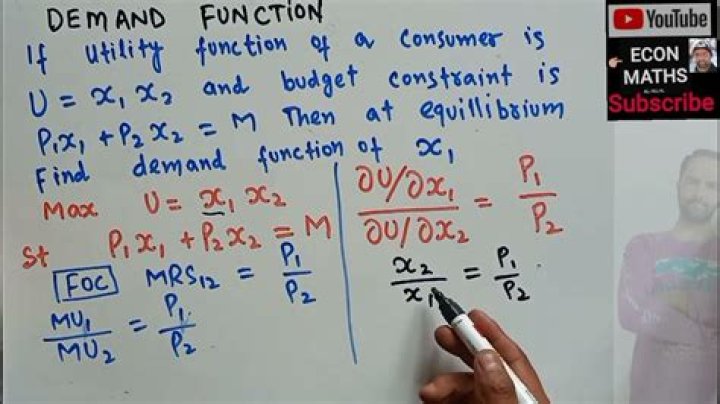 DEMAND FUNCTION
If utility function of a consumer is
U = x₁ x₂ and budget constraint is
P₁x₁ + P₂x₂ = M Then at equillibrium
Find demand function of x₁
Max U = x₁ x₂
St P₁x₁ + P₂x₂ = M
FOC MRS₁₂ = P₁/P₂
MU₁/MU₂ = P₁/P₂
∂U/∂x₁ / ∂U/∂x₂ = P₁/P₂
x₂/x₁ = P₁/P₂
YouTube
ECON
MATHS
Subscribe